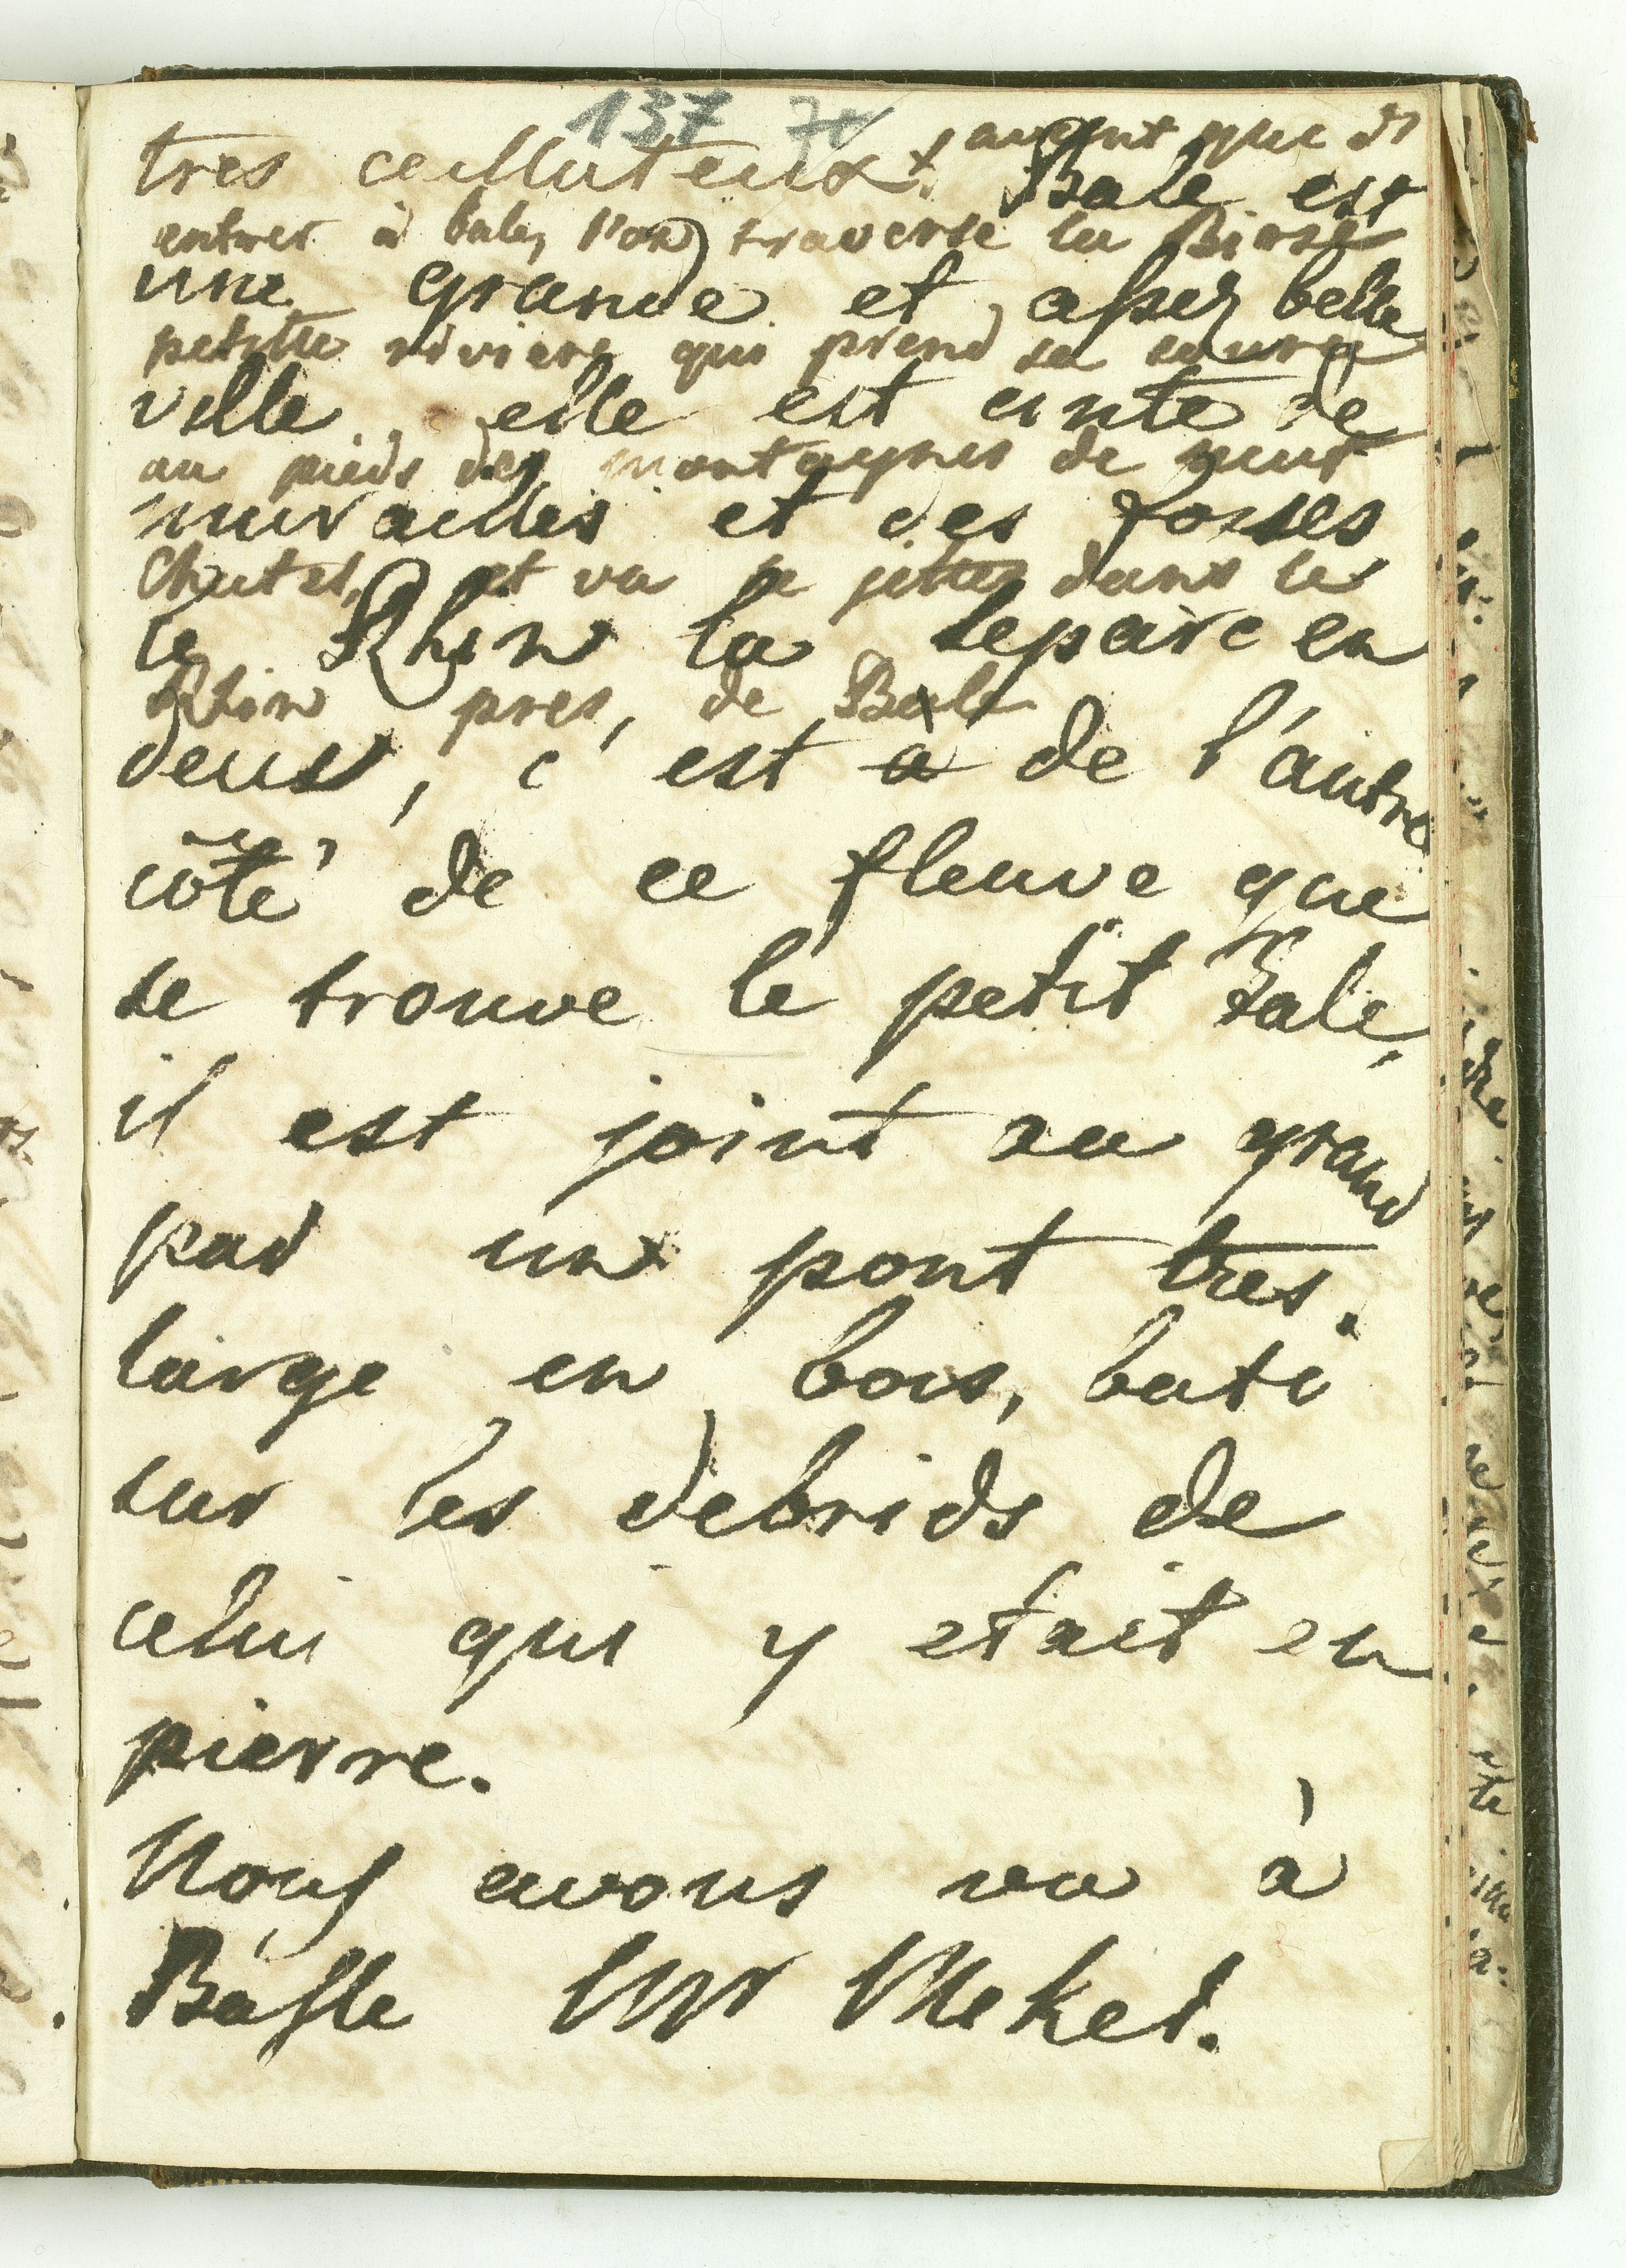 137 70
tres cailluteux + avant que d'
Bale est
entrer à bale, l'on traverse la Birse
une grande et assez belle
petitte riviere qui prend sa source
ville elle est cinte de
au pieds des montagnes de neuf
murailles et des fosses
Chatel, et va se jetter dans le
le Rhin la separe en
Rhin pres, de Bale
deus, c'est a de l'autre
côté de ce fleuve que
se trouve le petit Bale,
il est joint au grand
par un pont tres.
large en bois, bati
sur les debrids de
celui qui y etait en
pierre.
Nous avons vu à
Basle Mr Mekel.